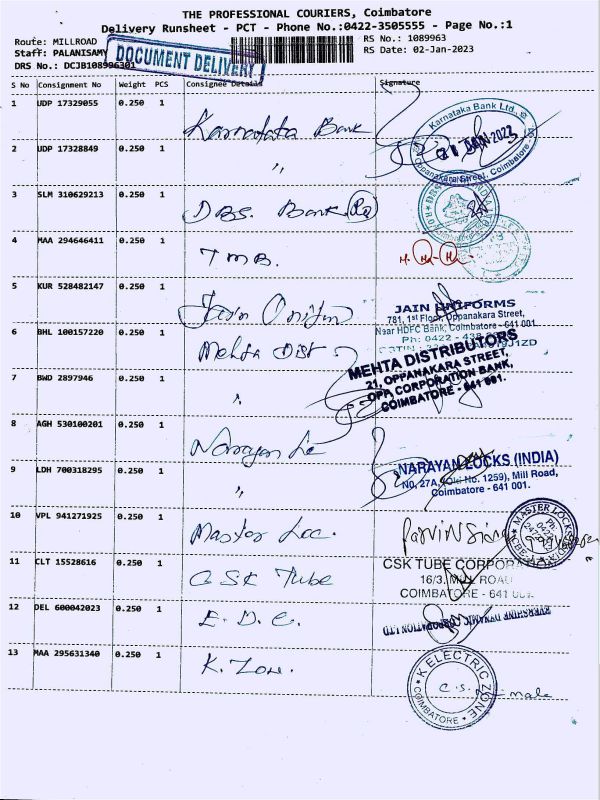 THE PROFESSIONAL COURIERS, Coimbatore
Delivery Runsheet - PCT - Phone No.:0422-3505555 - Page No.:1
Route: MILLROAD
RS No.: 1089963
Staff: PALANISAMY
RS Date: 02-Jan-2023
DRS No.: DCJB108996301
DOCUMENT DELIVERY
S No Consignment No Weight PCS Consignee Details Signature
1 UDP 17329055 0.250 1 Karnataka Bank
Karnataka Bank Ltd.,
Oppanakara Street, Coimbatore
2 UDP 17328849 0.250 1 "
3 SLM 310629213 0.250 1 DBS. Bank
4 MAA 294646411 0.250 1 TMB.
5 KUR 528482147 0.250 1 Jain
JAIN UNIFORMS
781, 1st Floor, Oppanakara Street,
Near HDFC Bank, Coimbatore - 641 001
Ph: 0422
6 BHL 100157220 0.250 1 Mehta Dist
MEHTA DISTRIBUTORS
21, OPPANAKARA STREET,
OPP. CORPORATION BANK,
COIMBATORE - 641 001.
7 BWD 2897946 0.250 1 "
8 AGH 530100201 0.250 1 Narayan
NARAYAN LOCKS (INDIA)
NO, 27A, (Old No. 1259), Mill Road,
Coimbatore - 641 001.
9 LDH 700318295 0.250 1 "
10 VPL 941271925 0.250 1 Master Loc.
MASTER LOCKS
11 CLT 15528616 0.250 1 CSK Tube
CSK TUBE CORPORATION
16/3, MILL ROAD
COIMBATORE - 641 001.
12 DEL 600042023 0.250 1 E. D. C.
EVERSHINE DYNAMIC CORPORATION LTD
13 MAA 295631340 0.250 1 K. Zon.
K ELECTRIC ZONE
COIMBATORE